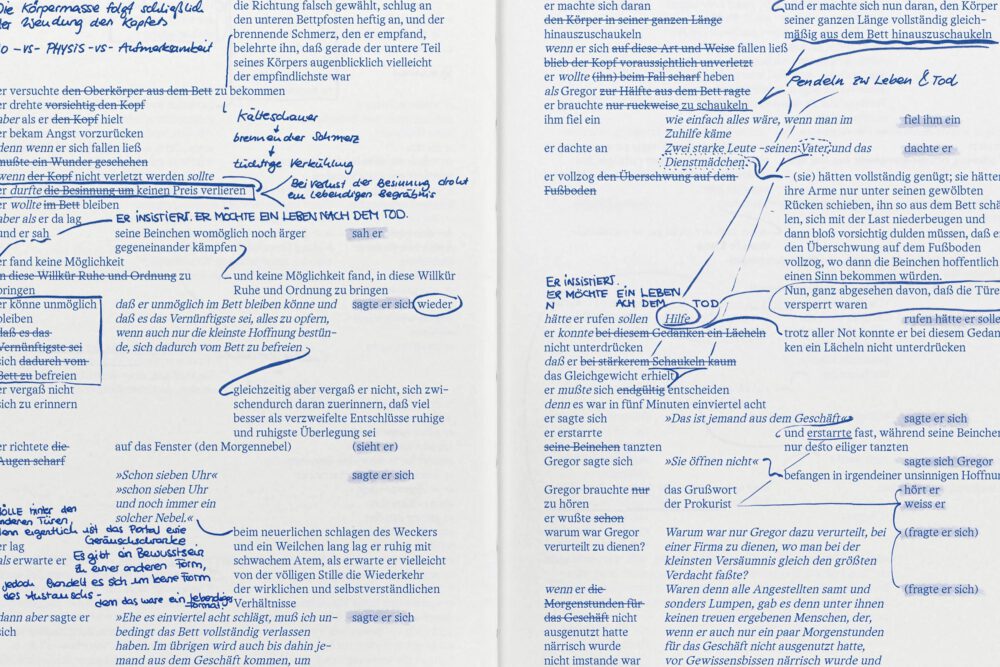 Die Körpermasse folgt schließlich
der Wendung des Kopfes
-vs- PHYSIS -vs- Aufmerksamkeit
die Richtung falsch gewählt, schlug an
den unteren Bettpfosten heftig an, und der
brennende Schmerz, den er empfand,
belehrte ihn, daß gerade der untere Teil
seines Körpers augenblicklich vielleicht
der empfindlichste war
er versuchte den Oberkörper aus dem Bett zu bekommen
er drehte vorsichtig den Kopf
aber als er den Kopf hielt
er bekam Angst vorzurücken
denn wenn er sich fallen ließ
mußte ein Wunder geschehen
wenn der Kopf nicht verletzt werden sollte
er durfte die Besinnung um keinen Preis verlieren
er wollte im Bett bleiben
aber als er da lag
und er sah
Kälteschauer
brennender Schmerz
tüchtige Verkühlung
Bei Verlust der Besinnung droht
ein lebendiges Begräbnis
ER INSISTIERT. ER MÖCHTE EIN LEBEN NACH DEM TOD.
seine Beinchen womöglich noch ärger
gegeneinander kämpfen
sah er
er fand keine Möglichkeit
in diese Willkür Ruhe und Ordnung zu
bringen
und keine Möglichkeit fand, in diese Willkür
Ruhe und Ordnung zu bringen
er könne unmöglich
bleiben
daß es das
Vernünftigste sei
sich dadurch vom
Bett zu befreien
daß er unmöglich im Bett bleiben könne und
daß es das Vernünftigste sei, alles zu opfern,
wenn auch nur die kleinste Hoffnung bestün-
de, sich dadurch vom Bett zu befreien
sagte er sich wieder
er vergaß nicht
sich zu erinnern
gleichzeitig aber vergaß er nicht, sich zwi-
schendurch daran zuerinnern, daß viel
besser als verzweifelte Entschlüsse ruhige
und ruhigste Überlegung sei
er richtete die
Augen scharf
auf das Fenster (den Morgennebel)
(sieht er)
»Schon sieben Uhr«
»schon sieben Uhr
und noch immer ein
solcher Nebel.«
sagte er sich
HÖLLE hinter den
anderen Türen,
denn eigentlich ist das Portal eine
Geräuschschranke
Es gibt ein Bewusstsein
zu einer anderen Form,
jedoch handelt es sich um keine Form
des Austauschs-
denn das wäre ein lebendiges
Format
er lag
als erwarte er
beim neuerlichen schlagen des Weckers
und ein Weilchen lang lag er ruhig mit
schwachem Atem, als erwarte er vielleicht
von der völligen Stille die Wiederkehr
der wirklichen und selbstverständlichen
Verhältnisse
dann aber sagte er
sich
»Ehe es einviertel acht schlägt, muß ich un-
bedingt das Bett vollständig verlassen
haben. Im übrigen wird auch bis dahin je-
mand aus dem Geschäft kommen, um
sagte er sich
er machte sich daran
den Körper in seiner ganzen Länge
hinauszuschaukeln
wenn er sich auf diese Art und Weise fallen ließ
blieb der Kopf voraussichtlich unverletzt
er wollte (ihn) beim Fall scharf heben
als Gregor zur Hälfte aus dem Bett ragte
er brauchte nur ruckweise zu schaukeln
und er machte sich nun daran, den Körper
seiner ganzen Länge vollständig gleich-
mäßig aus dem Bett hinauszuschaukeln
Pendeln zw Leben & Tod
ihm fiel ein
wie einfach alles wäre, wenn man im
Zuhilfe käme
fiel ihm ein
er dachte an
Zwei starke Leute – seinen Vater und das
Dienstmädchen
dachte er
er vollzog den Überschwung auf dem
Fußboden
– (sie) hätten vollständig genügt; sie hätten
ihre Arme nur unter seinen gewölbten
Rücken schieben, ihn so aus dem Bett schä
len, sich mit der Last niederbeugen und
dann bloß vorsichtig dulden müssen, daß er
den Überschwung auf dem Fußboden
vollzog, wo dann die Beinchen hoffentlich
einen Sinn bekommen würden.
Nun, ganz abgesehen davon, daß die Türe
versperrt waren
ER INSISTIERT.
ER MÖCHTE EIN LEBEN
NACH DEM TOD
hätte er rufen sollen
Hilfe
rufen hätte er solle
er konnte bei diesem Gedanken ein Lächeln
nicht unterdrücken
trotz aller Not konnte er bei diesem Gedan
ken ein Lächeln nicht unterdrücken
daß er bei stärkerem Schaukeln kaum
das Gleichgewicht erhielt
er mußte sich endgültig entscheiden
denn es war in fünf Minuten einviertel acht
er sagte sich
»Das ist jemand aus dem Geschäft«
sagte er sich
er erstarrte
seine Beinchen tanzten
und erstarrte fast, während seine Beinchen
nur desto eiliger tanzten
Gregor sagte sich
»Sie öffnen nicht«
sagte sich Gregor
befangen in irgendeiner unsinnigen Hoffnun
Gregor brauchte nur
zu hören
er wußte schon
das Grußwort
der Prokurist
hört er
weiss er
warum war Gregor dazu
verurteilt zu dienen?
Warum war nur Gregor dazu verurteilt, bei
einer Firma zu dienen, wo man bei der
kleinsten Versäumnis gleich den größten
Verdacht faßte?
(fragte er sich)
wenn er die
Morgenstunden für
das Geschäft nicht
ausgenutzt hatte
närrisch wurde
nicht imstande war
Waren denn alle Angestellten samt und
sonders Lumpen, gab es denn unter ihnen
keinen treuen ergebenen Menschen, der,
wenn er auch nur ein paar Morgenstunden
für das Geschäft nicht ausgenutzt hatte,
vor Gewissensbissen närrisch wurde und
(fragte er sich)